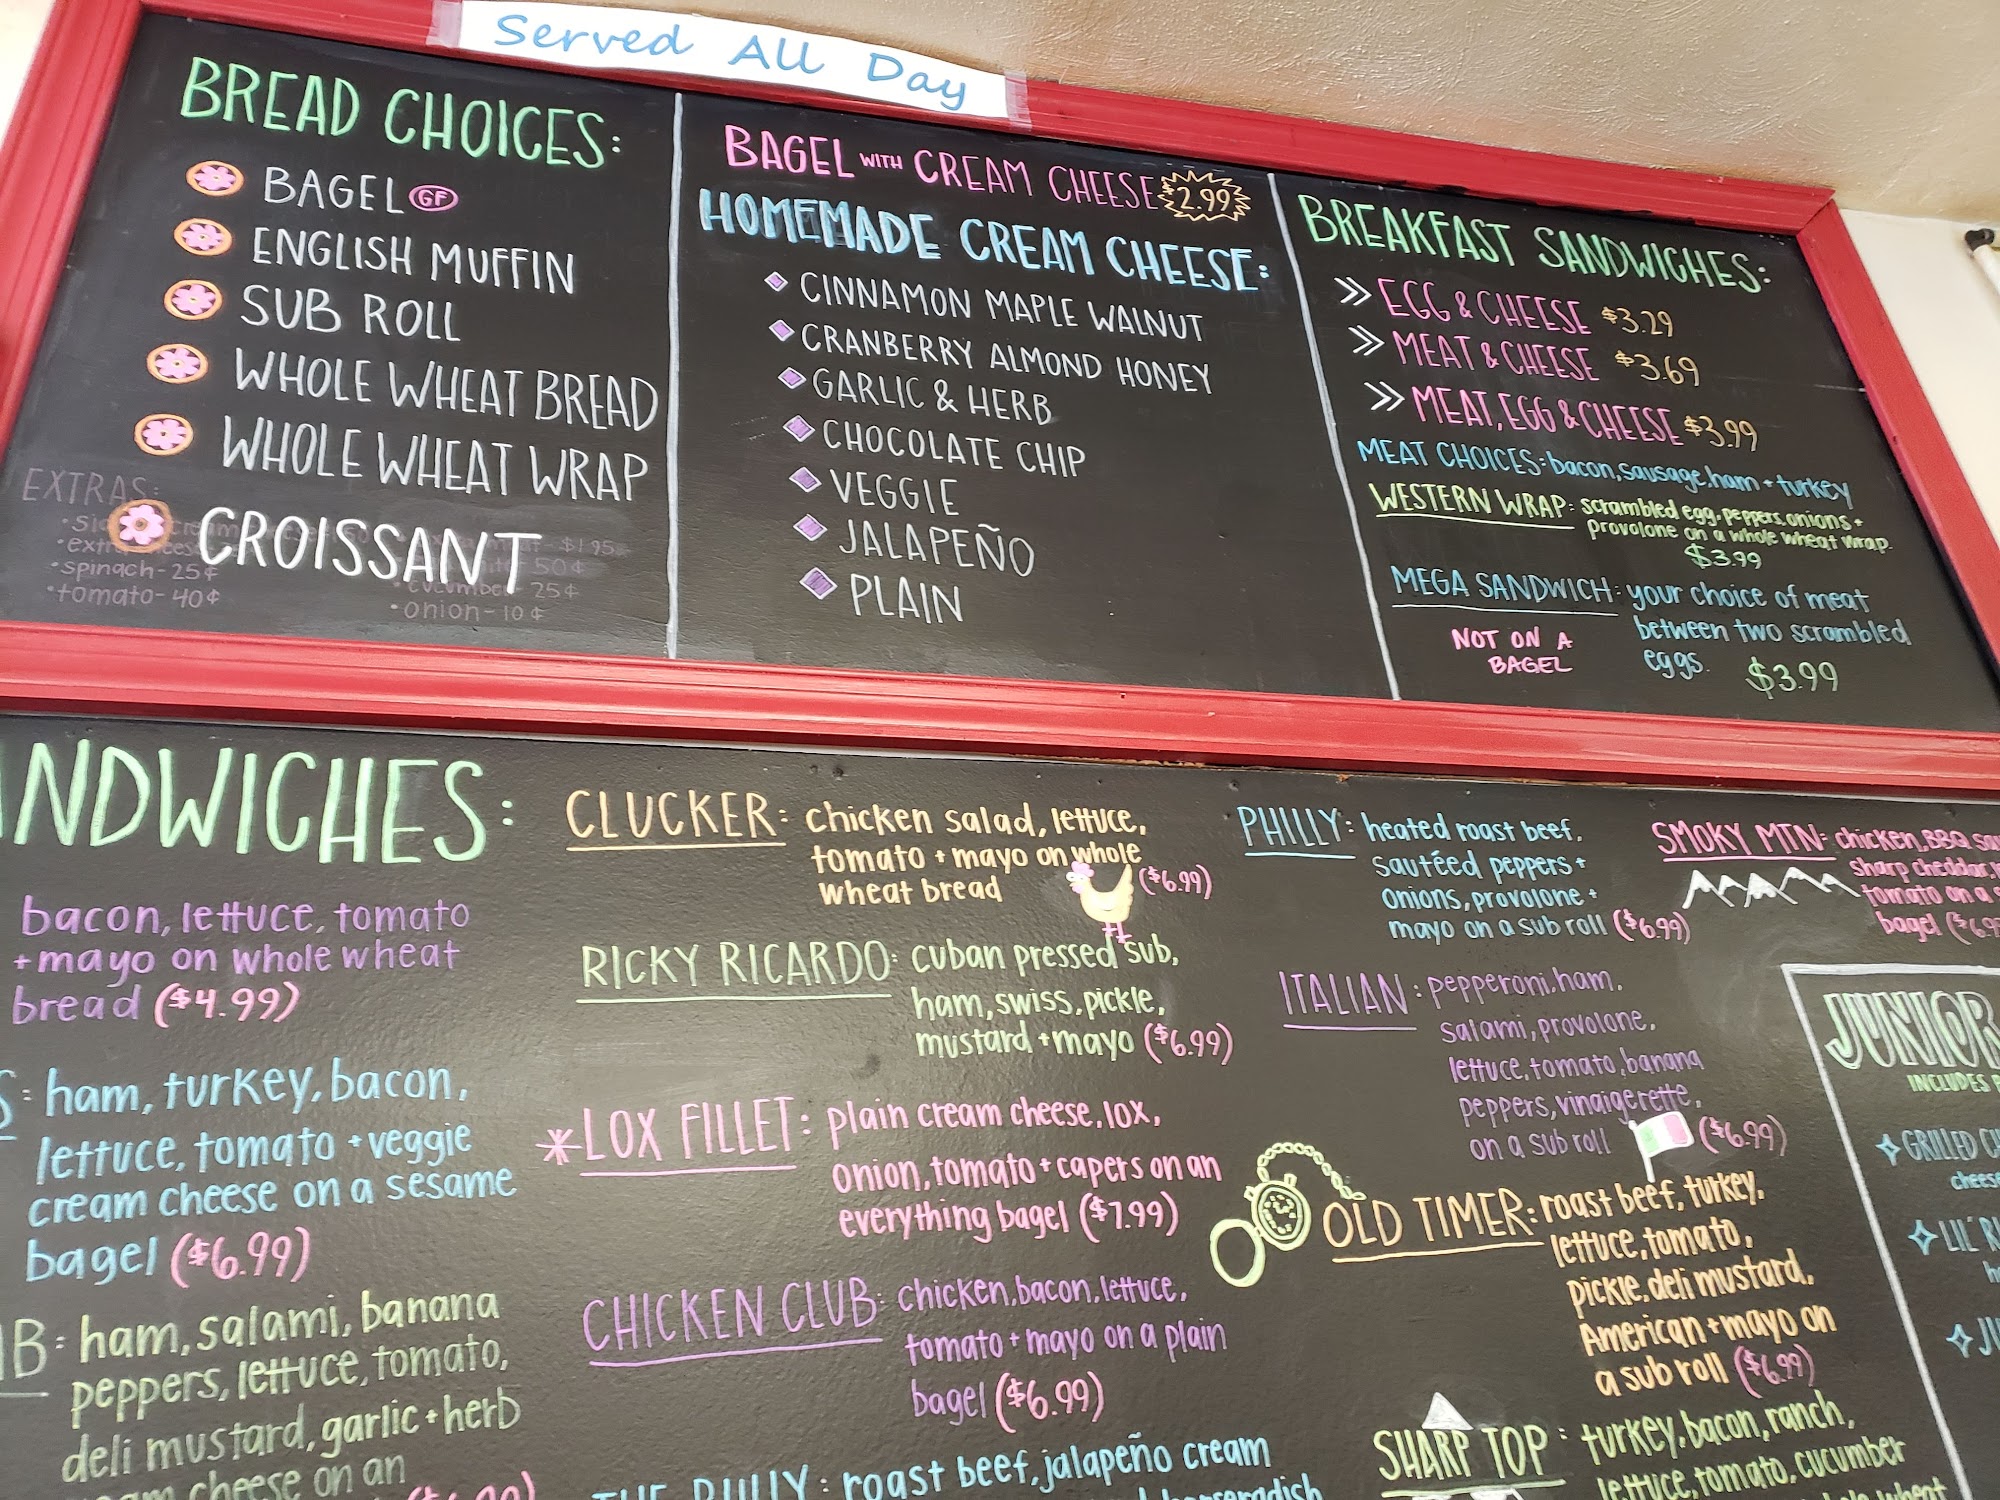 Served All Day
BREAD CHOICES:
BAGEL GF
ENGLISH MUFFIN
SUB ROLL
WHOLE WHEAT BREAD
WHOLE WHEAT WRAP
CROISSANT
EXTRAS:
•spinach-25¢
•tomato-40¢
$1.95
50¢
•cucumber-25¢
•onion-10¢
BAGEL WITH CREAM CHEESE $2.99
HOMEMADE CREAM CHEESE:
CINNAMON MAPLE WALNUT
CRANBERRY ALMOND HONEY
GARLIC & HERB
CHOCOLATE CHIP
VEGGIE
JALAPEÑO
PLAIN
BREAKFAST SANDWICHES:
EGG & CHEESE $3.29
MEAT & CHEESE $3.69
MEAT, EGG & CHEESE $3.99
MEAT CHOICES: bacon, sausage, ham + turkey
WESTERN WRAP: scrambled egg, peppers, onions +
provolone on a whole wheat wrap.
$3.99
MEGA SANDWICH: your choice of meat
between two scrambled
eggs. $3.99
NOT ON A
BAGEL
NDWICHES:
bacon, lettuce, tomato
+ mayo on whole wheat
bread ($4.99)
S: ham, turkey, bacon,
lettuce, tomato + veggie
cream cheese on a sesame
bagel ($6.99)
B: ham, salami, banana
peppers, lettuce, tomato,
deli mustard, garlic + herb
cheese on an
CLUCKER: chicken salad, lettuce,
tomato + mayo on whole
wheat bread ($6.99)
RICKY RICARDO: cuban pressed sub,
ham, swiss, pickle,
mustard + mayo ($6.99)
*LOX FILLET: plain cream cheese, lox,
onion, tomato + capers on an
everything bagel ($7.99)
CHICKEN CLUB: chicken, bacon, lettuce,
tomato + mayo on a plain
bagel ($6.99)
roast beef, jalapeño cream
horseradish
PHILLY: heated roast beef,
sautéed peppers +
onions, provolone +
mayo on a sub roll ($6.99)
ITALIAN: pepperoni, ham,
salami, provolone,
lettuce, tomato, banana
peppers, vinaigerette,
on a sub roll ($6.99)
OLD TIMER: roast beef, turkey,
lettuce, tomato,
pickle, deli mustard,
American + mayo on
a sub roll ($6.99)
SHARP TOP: turkey, bacon, ranch,
lettuce, tomato, cucumber
SMOKY MTN: chicken, BBQ
sharp cheddar,
tomato on a
bagel
JUNIOR
INCLUDES
GRILLED
cheese
LIL'